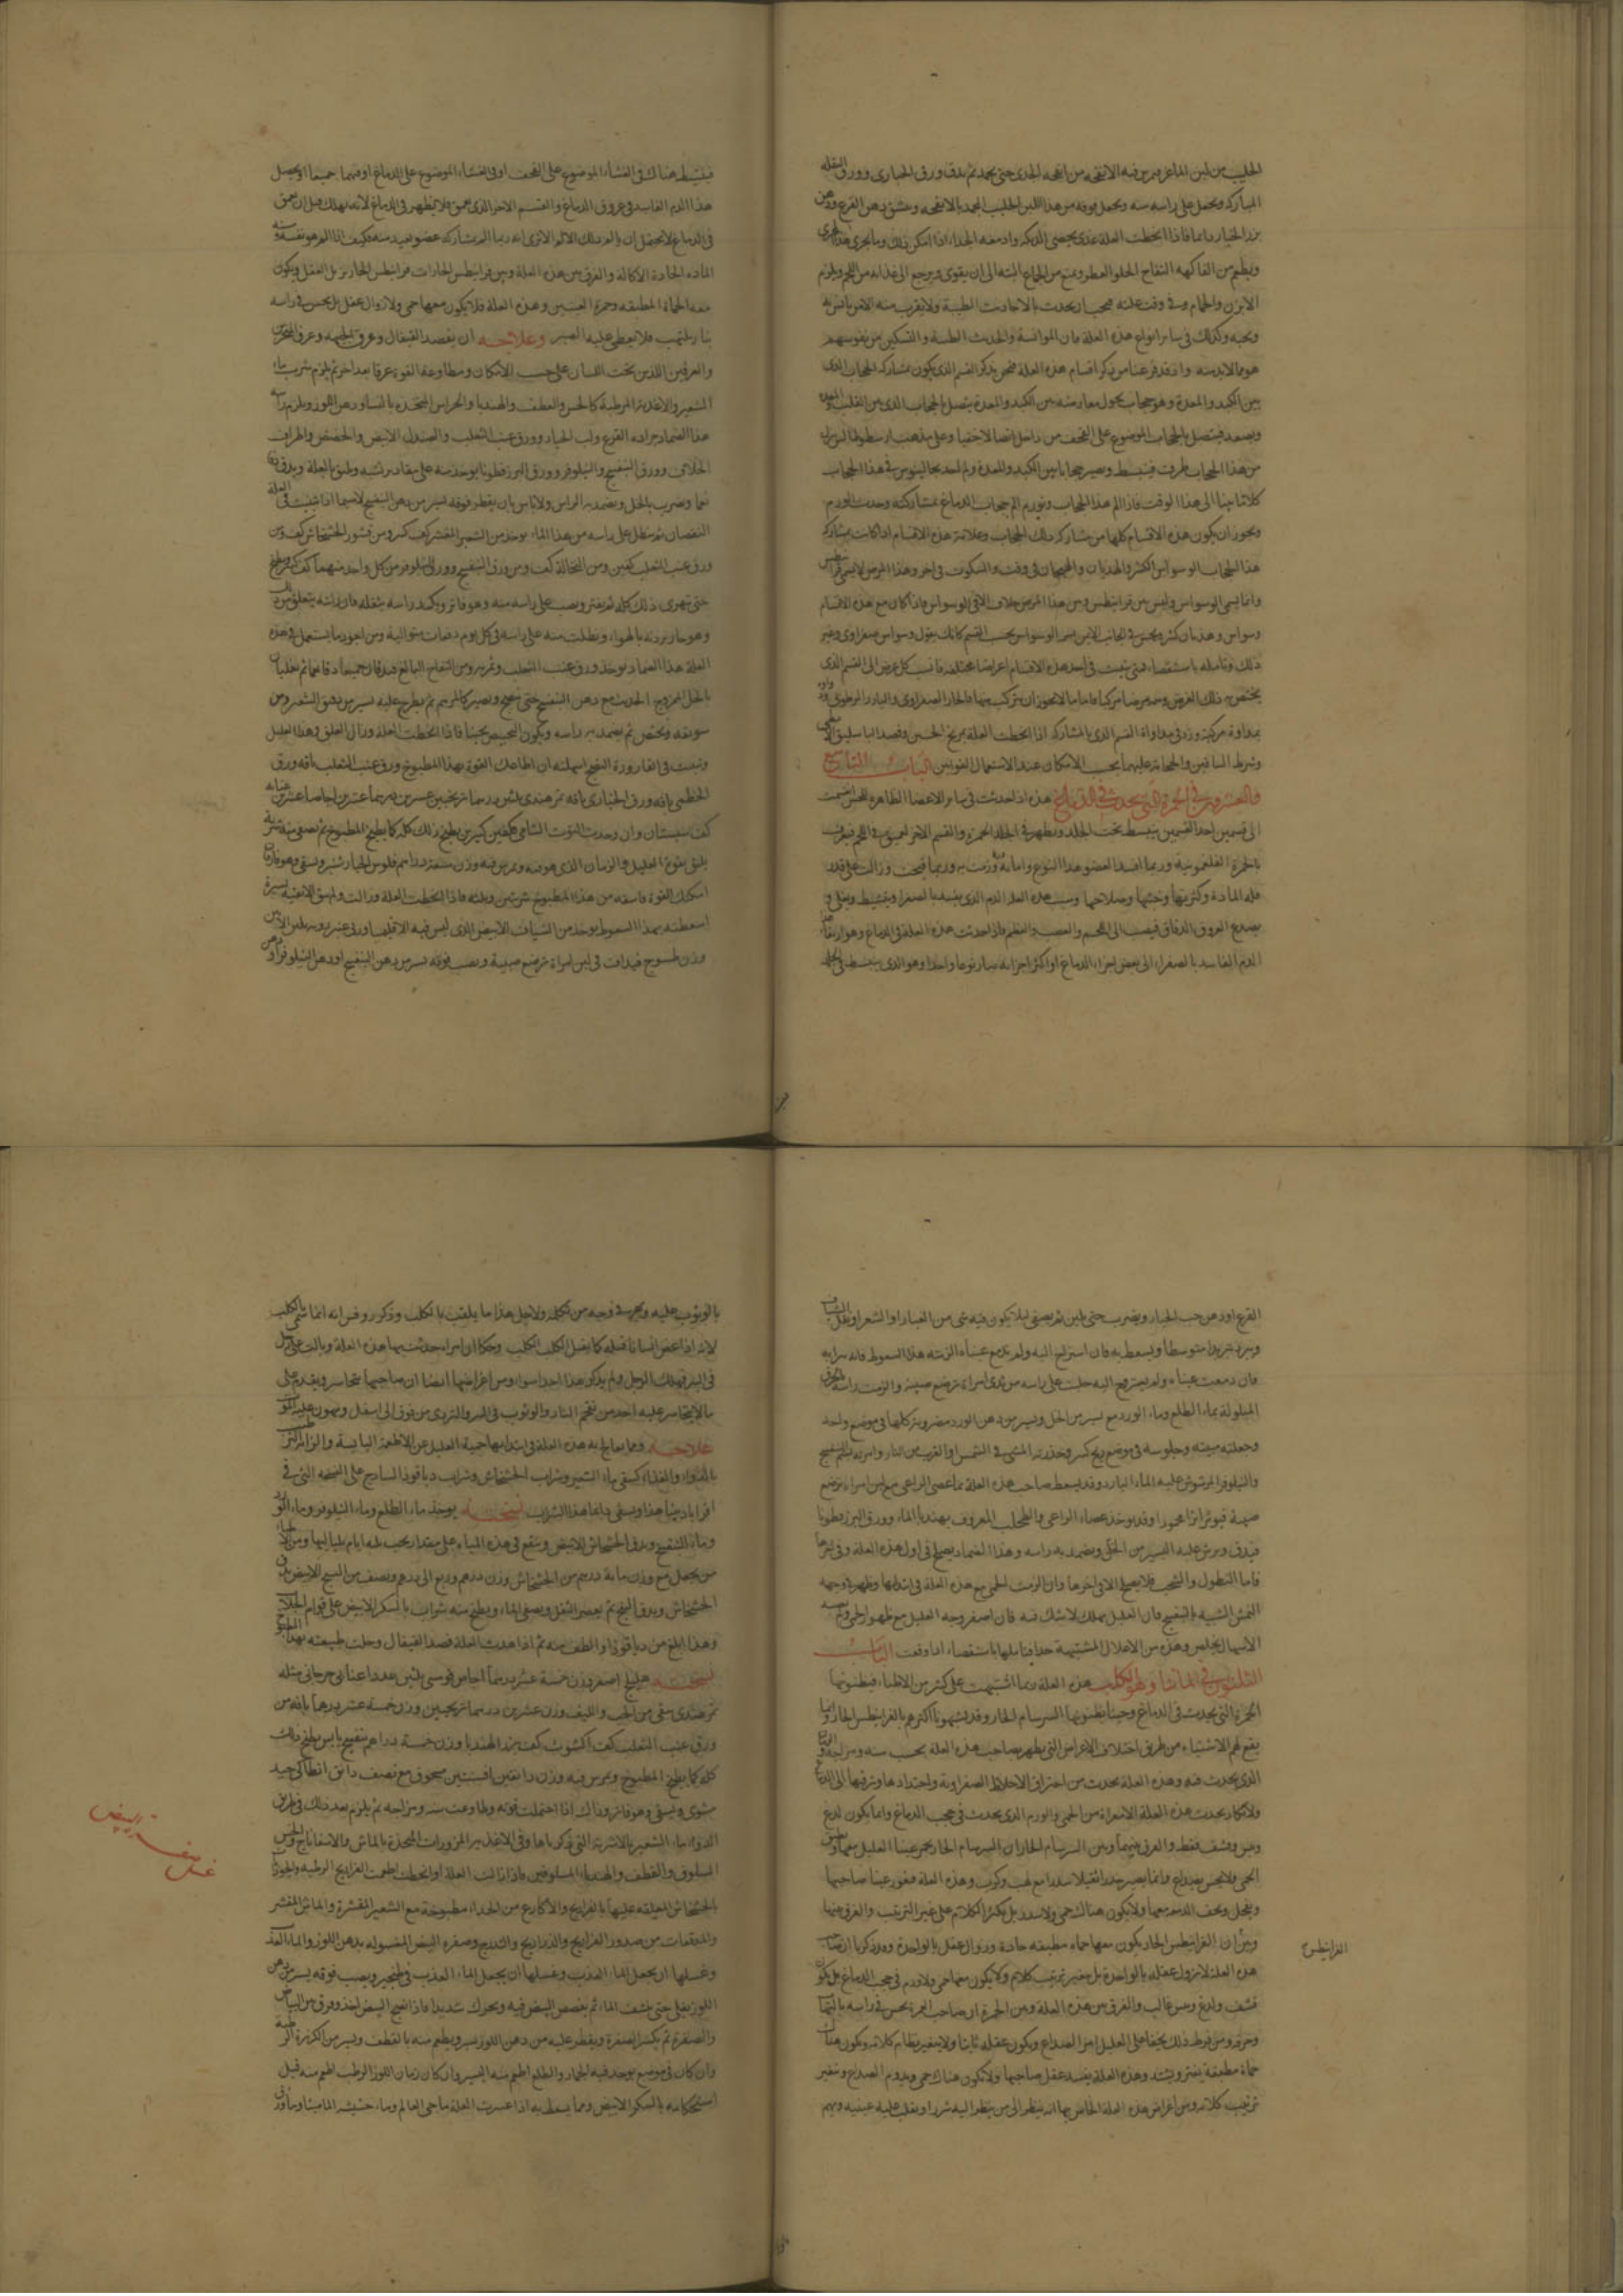 الحليب من لبن الماعز ويمرس فيه الانفحه من انفحه الجدى حتى يجمد ثم يدق ورق الخبازى وورق البقله
المباركه ويجعل على راسه منه ويجعل فوقه من هذا اللبن الحليب المجمد بالانفحه وعشق بدهن القرع ودهن
بزر الخيار دايما فاذا انحطت العلة غذى بخصى الديكه وادمغه الجداء اذا امكن ذلك وما يجرى هذا المجرى
ويطعم من الفاكهه التفاح الحلو العطر ويمنع من الجماع البته الى ان يقوى ويرجع الى غذايه من اللحم ويلزم
الابزن والحمام وفى وقت علته فيجب ان يحدث بالاحاديث الطيبة ولا يقرب منه الا من يانس به
ويحبه وكذلك فى ساير انواع هذه العلة فان الموانسة والحديث الطيبة والتسكين من نفوسهم
هو مما لابد منه واذ قد فرغنا من ذكر اقسام هذه العلة فنحن نذكر القسم الذى يكون بمشاركه الحجاب الذى
بين الكبد والمعدة وهو حجاب يحول معارضه بين الكبد والمعدة يتصل بالحجاب الذى بين القلب والمعده
ويصعد فيتصل بالحجاب الموضوع على القحف من داخل اتصالا خفيا وعلى مذهب ارسطوطاليس ان
من هذا الحجاب طرف فينبسط ويصير حجابا بين الكبد والمعدة ولم نجد لجالينوس فى هذا الحجاب
كلاما بينا الى هذا الوقت فاذا الم هذا الحجاب وتورم الم حجاب الدماغ بمشاركته وحدث الورم
ويجوز ان يكون هذه الاقسام كلها من مشاركه ذلك الحجاب وعلامة هذه الاقسام اذا كانت بمشاركه
هذا الحجاب الوسواس الكثير والهذيان والهيجان فى وقت والسكوت فى اخر وهذا المرض لا يسمى قرانيطس
وانما يسمى الوسواس وليس بين قرانيطس وبين هذا المرض خلاف الا فى الوسواس فاذا كان مع هذه الاقسام
وسواس وهذيان كثير
ذلك وتامله باستقصاء فمتى رايت فى احد هذه الاقسام اعراضا مختلفه فانسب كل عرض الى القسم الذى
يختص به ذلك العرض وسمه مرضا مركبا فاما ما لا يجوز ان يتركب منها فالحار الصفراوى والبارد الرطوبى وداوه
بمداوة مركبة وزد فى مداواة القسم الذى بالمشاركه اذا انحطت العلة
وشرط الساقين والحجامة عليهما بحسب الامكان عند الاستعمال القوتين الباب التاسع
والعشرون فى الحمرة التى تحدث فى الدماغ هذه اذا حدثت فى ساير الاعضا الظاهره للحس انقسمت
الى قسمين احد القسمين ينبسط تحت الجلد ويظهر فى الجلد الحمرة والقسم الاخر يعمق فى اللحم فيعرف
بالحمرة الفلغمونية وربما افسد العضو هذا النوع واماته وربما قيحت وزالت على قدر
قله المادة وكثرتها وخبثها وصلاحها وسبب هذه العلة الدم الذى يفسد بالصفراء وينشط ويغلى و
يصدع العروق الدقاق فينصب الى اللحم والعصب والعظم فاذا حدثت هذه العلة فى الدماغ وهو ارتقاء هذا
الدم الفاسد بالصفراء الى بعض اجزاء الدماغ او اكثر اجزايه صار نوعا واحدا وهو الذى ينبسط فى الجلد
فينبسط هناك فى الغشاء الموضوع على القحف او فى الغشاء الموضوع على الدماغ او فيهما جميعا او يحصل
هذا الدم الفاسد فى عروق الدماغ والقسم الاخر الذى يعمق فلا يظهر فى الدماغ لانه يهلك قبل ان يعمق
فى الدماغ لا يحتمل ان يالم ذلك الالم الا ترى انه ربما الم بمشاركه عضو بعيد منه فكيف اذا الم هو نفسه
الماده الحادة الاكالة والفرق بين هذه العلة وبين قرانيطس الحار ان قرانيطس الحار يزيل العقل ويكون
معه الحماة المطبقه وحمرة العينين وهذه العلة فلا يكون معها حمى ولا زوال عقل بل يحس فى راسه
بنار يلتهب فلا يعطى عليه الصبر وعلاجه ان يفصد القيفال وعرق الجبهه وعرق المنخرين
والعرقين اللذين تحت اللسان على حسب الامكان ومطاوعة القوة عرقا بعد اخر ثم يلزم شرب ماء
الشعير والاغذية المرطبة كالخس والقطف والهندبا
هذا الضماد جراده القرع ولب الخيار وورق عنب الثعلب والصندل الابيض والحضض واطراف
الخلاف وورق البنفسج والنيلوفر وورق البزرقطونا يوخذ منه على مقدار
نعما ويضرب بالخل ويضمد به الراس ولا باس بان يقطر فوقه يسير من دهن البنفسج لاسيما اذا اخذت فى العلة
النقصان ثم ينطل على راسه من هذا الماء يوخذ من الشعير المقشر كف كبير ومن قشور الخشخاش كف ومن
ورق عنب الثعلب كفين ومن النخالة كف ومن ورق البنفسج وورق النيلوفر من كل واحد منهما كف
حتى تتهرى ذلك كله ثم يفتر ويصب على راسه منه وهو فاتر ويكمد راسه بثفله
وهو حار برد به بالهواء ونطلت منه على راسه فى كل يوم دفعات متوالية ومن اجود ما يستعمل فى هذه
العلة هذا الضماد يوخذ ورق عنب الثعلب
بالخل الممزوج
سويقه ويختص ثم يضمد به راسه
وتبينت فى القارورة النضج اسهلته ان اطاعتك القوة بهذا المطبوخ ورق عنب الثعلب باقه ورق
الخطمى باقه ورق الخبازى باقه تمر هندى ثلثين درهما ترنجبين عشرين درهما عشرين اجاصا عشرين عنابه
كف سبستان وان وجدت التوت الشامى فكفين كبيرين يطبخ ذلك كله كما يطبخ المطبوخ ثم يصفى منه شربة
يليق بقوة العليل والزمان الذى هو فيه ويمرس فيه وزن سبعة دراهم فلوس الخيار شنبر ويسقى وهو فاتر
امكنك القوة فاسقه من هذا المطبوخ شربتين وثلثه فاذا انحطت العلة وزالت ولم يبق الا بقية يسيرة
اسعطته بهذا السعوط يوخذ من الشياف الابيض الذى ليس فيه الاقليميا ولا عنزروت
وزن طسوج فيداف فى لبن امراة ترضع صبية ويصب فوقه يسير من دهن البنفسج او دهن النيلوفر او دهن
القرع او دهن حب الخيار ويضرب حتى يلين ثم يصفى ليلا يكون فيه شى من الغبار او الشعر او ثفل الشياف
ويبرد تبريدا متوسطا ويسعط به فان استراح اليه ولم تدمع عيناه الزمته هذا السعوط فانه برايه
فان دمعت عيناه ولم يسترح اليه حلبت على راسه من ثدى امراة ترضع صبية والزمت راسه الخرق
المبلولة بماء الطلع وماء الورد مع يسير من الخل ويسير من دهن الورد مضروبة كلها فى موضع واحد
وجعلته مبيته وجلوسه فى موضع ريح كسر وحذرته المشى فى الشمس او القرب من النار وامرته بشم البنفسج
والنيلوفر المرشوش عليه الماء البارد وقد يسعط صاحب هذه العلة بماء عصى الراعى مع لبن امراة ترضع
صبية فيوثر اثرا محمودا وقد يوخذ عصاء الراعى والطحلب المعروف بهندباء الماء وورق البزرقطونا
فيدق ويرش عليه اليسير من الخل ويضمد به راسه وهذا الضماد يصلح فى اول هذه العلة وفى اخرها
فاما النطول والشجب فلا يصلح الا فى اخرها وان الزمت الحمى مع هذه العلة فى ابتدايها وظهر بوجهه
النمش الشبيه بالبنفسج فان العليل يهلك لا شك فيه فان اصفر وجه العليل مع ظهور الحمى ولم يصبه
الاسهال تخلص وهذه من الاعلال المشتبهة جدا فتاملها باستقصاء اذا وقعت الباب
الثلثون فى المانيا وهو الكلب هذه العلة ربما اشتبهت على كثير من الاطباء فيظنونها
الحمرة التى تحدث فى الدماغ وحينا يظنونها السرسام الحار وقد يشبهونها اكثرهم بالقرانيطس الحار وانما
يقع لهم الاشتباه من طريق اختلاف الاعراض التى يظهر بصاحب هذه العلة بحسب سنه ومزاجه والوقت
الذى يحدث فيه وهذه العلة يحدث من احتراق الاخلاط الصفراوية واحتدادها وترقيها الى الدماغ
ولا يكاد يحدث هذه العلة الا مبراة من الحمى والورم الذى يحدث فى حجب الدماغ وانما يكون لذع
ويبس وقشف فقط والفرق بينهما وبين السرسام الحار ان السرسام الحار يحمر عينا العليل معها ويطبق
الحمى فلا يحس بصداع وانما يصير خدرا ثقيلا سدرا مع لهب وكرب وهذه العلة فتغور عينا صاحبها
وينحل ويجف الدمعه معها ولا يكون هناك حمى ولا سدر بل يكثر الكلام على غير الترتيب والفرق بينها
وبين ان القرانيطس الحار يكون معها حماه مطبقه حادة وزوال عقل بالواحدة وقد ذكرنا ان صاحب
هذه العلة لا يزول عقله بالواحدة بل يتغير ترتيب كلام ولا يكون معها حمى ولا ورم فى حجب الدماغ بل يكون
قشف ولذع ويبس غالب والفرق بين هذه العلة وبين الحمرة ان صاحب الحمرة يحس فى راسه بالتهاب
وحرقه ومن فرط ذلك يخفى على العليل امر الصداع ويكون عقله ثابتا ولا يتغير نظام كلامه ويكون هناك
حماة مطبقة يفتر ويشتد وهذه العلة يفسد عقل صاحبها ولا يكون هناك حمى ويدوم الصداع ويتغير
ترتيب كلامه ومن اعراض هذه العلة الخاص بها انه ينظر الى من ينظر اليه شزرا ويقلب عليه عينيه ويهم
القرانيطس
بالوثوب عليه ويهر فى وجه من تكلمه ولاجل هذا ما يلقب بالكلب وذكر روفس انه انما سمى بالكلب
لانه اذا عض انسانا قتله كما يقتل الكلب الكلب وحكا ان امراة حدثت بها هذه العلة وبالت على رجل
فى البئر فهلك الرجل ولم يذكر هذا احد سواه ومن اعراضها ايضا ان صاحبها يتجاسر ويقدم على
ما لا يتجاسر عليه احد من تقحم النار والوثوب فى البير والتردى من فوق الى اسفل ويهون عليه الموت
علاجه ومما يعالج به هذه العلة فى ابتدايها حمية العليل عن الاطعمة اليابسة والزامه الترطيب
بالدواء والغذاء كسقى ماء الشعير وشراب الخشخاش وشراب دياقوذا الساذج على النسخه التى فى
اقراباديننا هذا ويسقى دايما هذا الشراب نسخته يوخذ ماء الطلع وماء النيلوفر وماء الورد
وماء البنفسج ويدق الخشخاش الابيض وينقع فى هذه المياه على مقدار يجب ثلثه ايام بلياليها
من يجعل مع وزن مايه درهم من الخشخاش وزن درهم وربع الى درهم ونصف من البنج الابيض
الخشخاش ويدق البنج ثم يعصر الثفل ويصفى الماء ويطبخ منه شراب بالسكر الابيض على قوام الجلاب
وهذا ابلغ من دياقوذا والطف منه ثم اذا هدت العلة فصد القيفال وحلت طبيعته بهذا المطبوخ
نسخته هليلج اصفر وزن خمسة عشر درهما اجاص قومسى ثلثين عددا عناب جرجانى مثله
تمر هندى منقى من الحب والليف وزن عشرين درهما ترنجبين وزن خمسة عشر درهما باقه من
ورق عنب الثعلب كف اكشوث كف بزر الهندبا وزن خمسة دراهم بنفسج يابس يطبخ ذلك
كله كما يطبخ المطبوخ ويمرس فيه وزن دانقين افسنتين مسحوق مع نصف دانق انطاكى جيد
مشوى ويسقى وهو فاتر وذاك اذا احتملت قوته وطاوعت سنه ومزاجه ثم يلزم بعد ذلك فى طريق
الدواء ماء الشعير بالاشربة التى ذكرناها وفى الاغذية المزورات المتخذة بالماش والاسفاناخ والخس
المسلوق والقطف والهندباء المسلوقين فاذا زالت العلة او انحطت اطعمت الفراريج الرطبه والجوذاب
بالخشخاش المعلقه عليها بالفراريج والاكارع من الجداء مطبوخة مع الشعير المقشرة والماش المقشر
والمدققات من صدور الفراريج والدراريج والتدرج وصفرة البيض المغسوله بدهن اللوز والماء العذب
وغسلها ان يجعل الماء العذب وغسلها ان يجعل الماء العذب فى طنجير ويصب فوقه يسير من دهن
اللوز يغلى حتى ينشف الماء ثم يفصص البيض فيه ويحرك شديدا فاذا انضج البيض اخذ وفرق بين البياض
والصفرة ثم يكسر الصفرة ويقطر عليه من دهن اللوز يسير ويطعم منه بالقطف ويسير من الكزبرة الرطبة
وان كان فى موضع يوجد فيه الجمار والطلع اطعم منه اليسير وان كان زمان اللوز الرطب اطعم منه قبل
استحكامه بالسكر الابيض ومما يسعط به اذا عسرت العلة ماء حى العالم وماء حشيشه الماميثا وماء ورق
غسل صفرة البيض